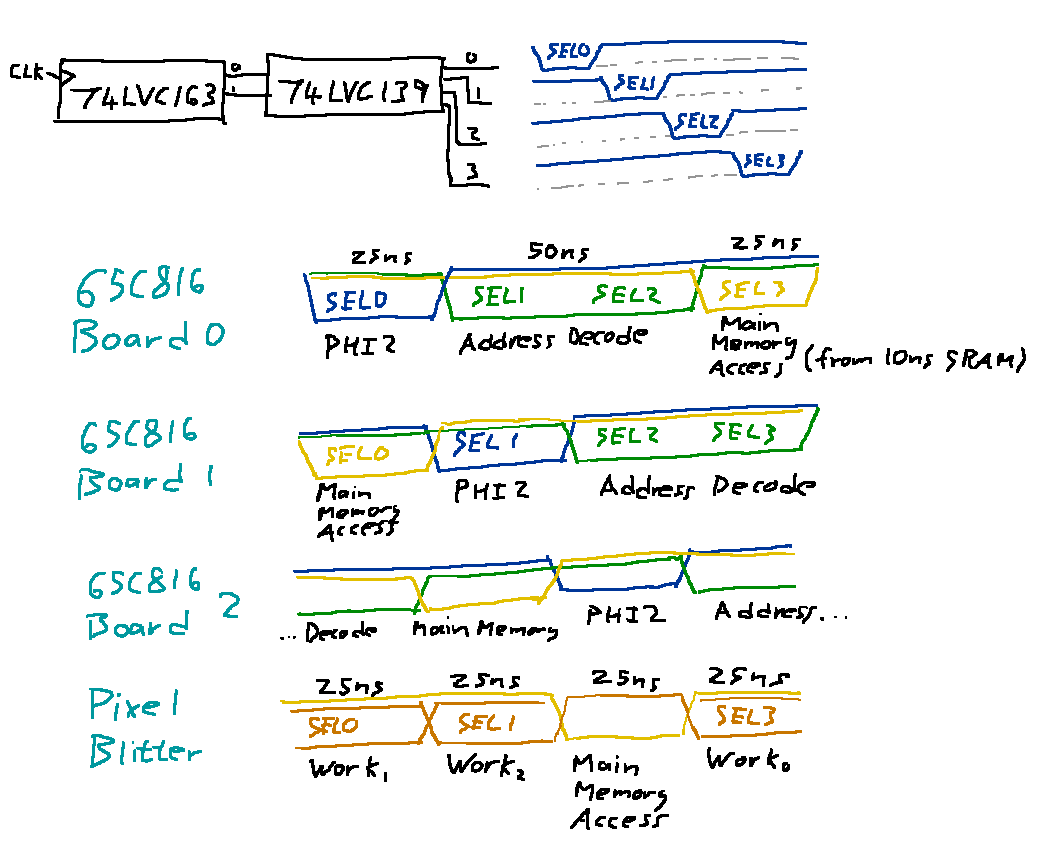 CLK
74LVC163
0
1
74LVC139
0
1
2
3
SEL0
SEL1
SEL2
SEL3
65C816
Board 0
25ns
50ns
25ns
SEL0
SEL1
SEL2
SEL3
PHI2
Address Decode
Main
Memory
Access
(from 10ns SRAM)
65C816
Board 1
SEL0
SEL1
SEL2
SEL3
Main
Memory
Access
PHI2
Address Decode
65C816
Board 2
... Decode
Main Memory
PHI2
Address...
Pixel
Blitter
25ns
25ns
25ns
25ns
SEL0
SEL1
SEL3
Work₁
Work₂
Main
Memory
Access
Work₀